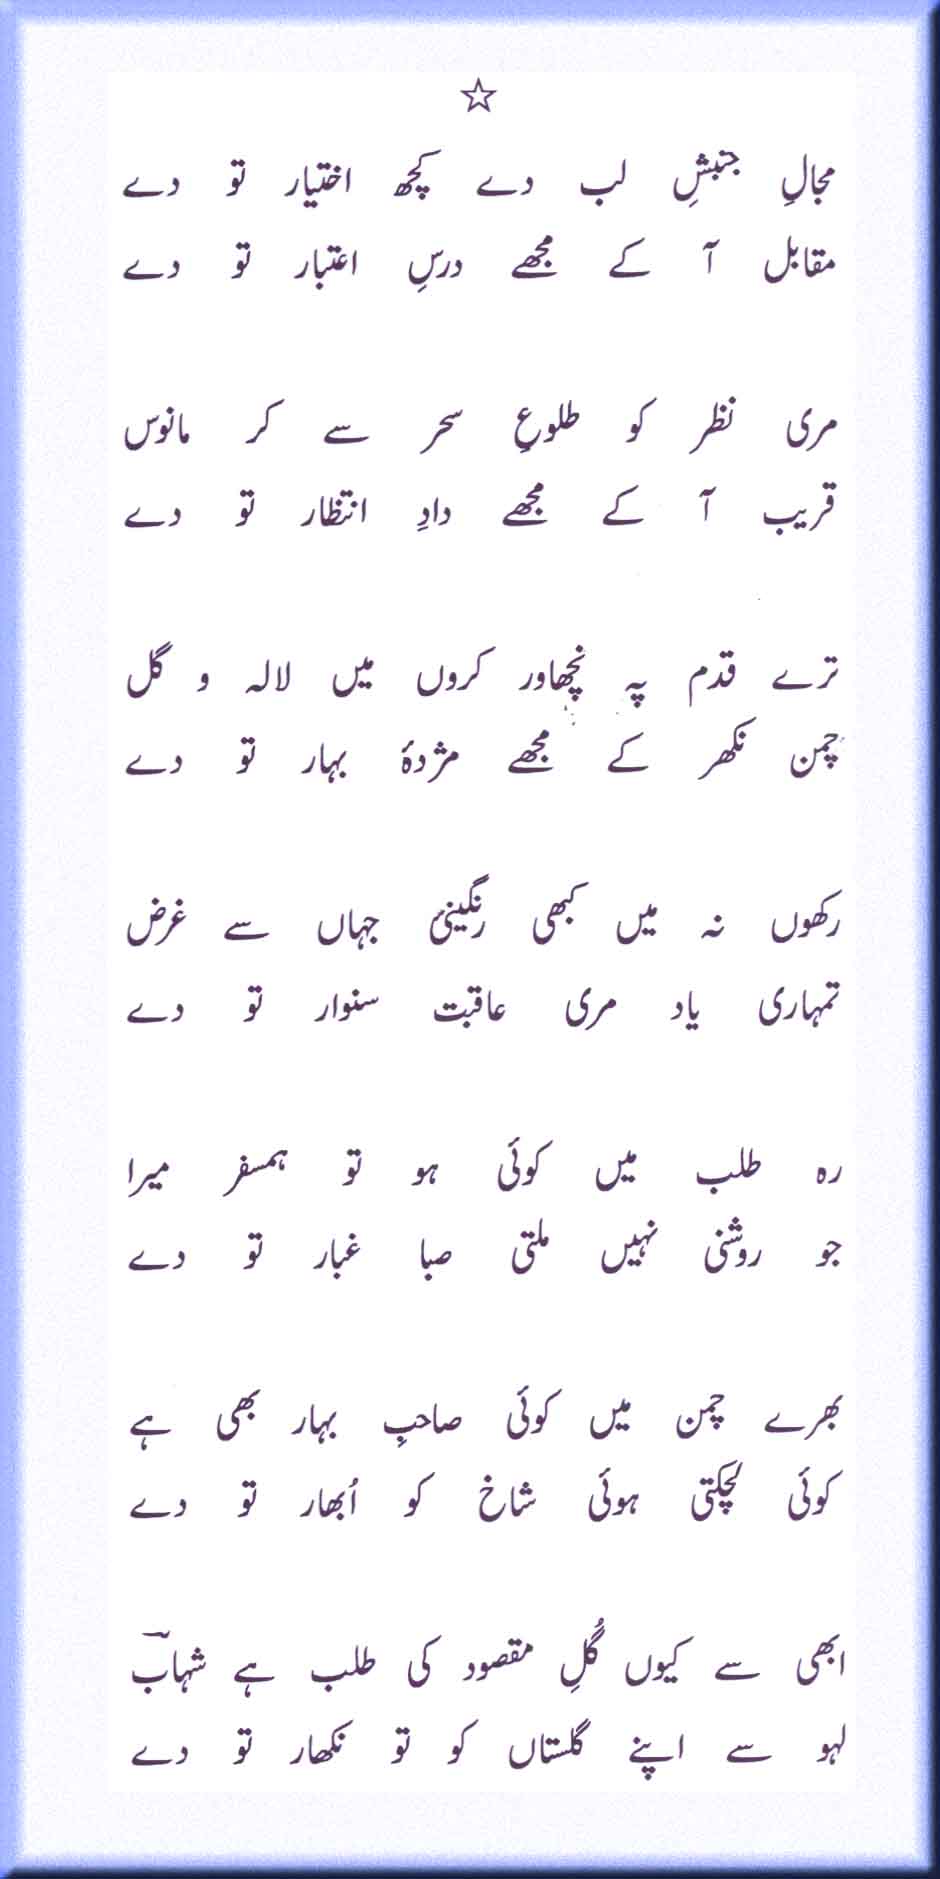 مجالِ جنبشِ لب دے کچھ اختیار تو دے
مقابل آ کے مجھے درسِ اعتبار تو دے
مری نظر کو طلوعِ سحر سے کر مانوس
قریب آ کے مجھے دادِ انتظار تو دے
ترے قدم پہ نچھاور کروں میں لالہ و گل
چمن نکھر کے مجھے مژدۂ بہار تو دے
رکھوں نہ میں کبھی رنگینیٔ جہاں سے غرض
تمہاری یاد مری عاقبت سنوار تو دے
رہ طلب میں کوئی ہو تو ہمسفر میرا
جو روشنی نہیں ملتی صبا غبار تو دے
بھرے چمن میں کوئی صاحبِ بہار بھی ہے
کوئی لچکتی ہوئی شاخ کو اُبھار تو دے
ابھی سے کیوں گُلِ مقصود کی طلب ہے شہابؔ
لہو سے اپنے گلستاں کو تو نکھار تو دے